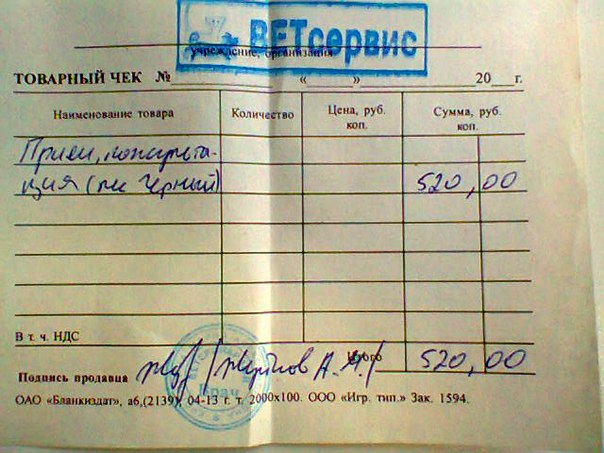 ВЕТсервис
учреждение, организация
ТОВАРНЫЙ ЧЕК № « » 20 г.
Наименование товара Количество Цена, руб. коп. Сумма, руб. коп.
Прием, консульта-
ция (пес Черный) 520,00
В т. ч. НДС
Итого 520,00
Подпись продавца
Врач
ОАО «Бланкиздат», а6,(2139), 04-13 г. т. 2000х100. ООО «Игр. тип.» Зак. 1594.